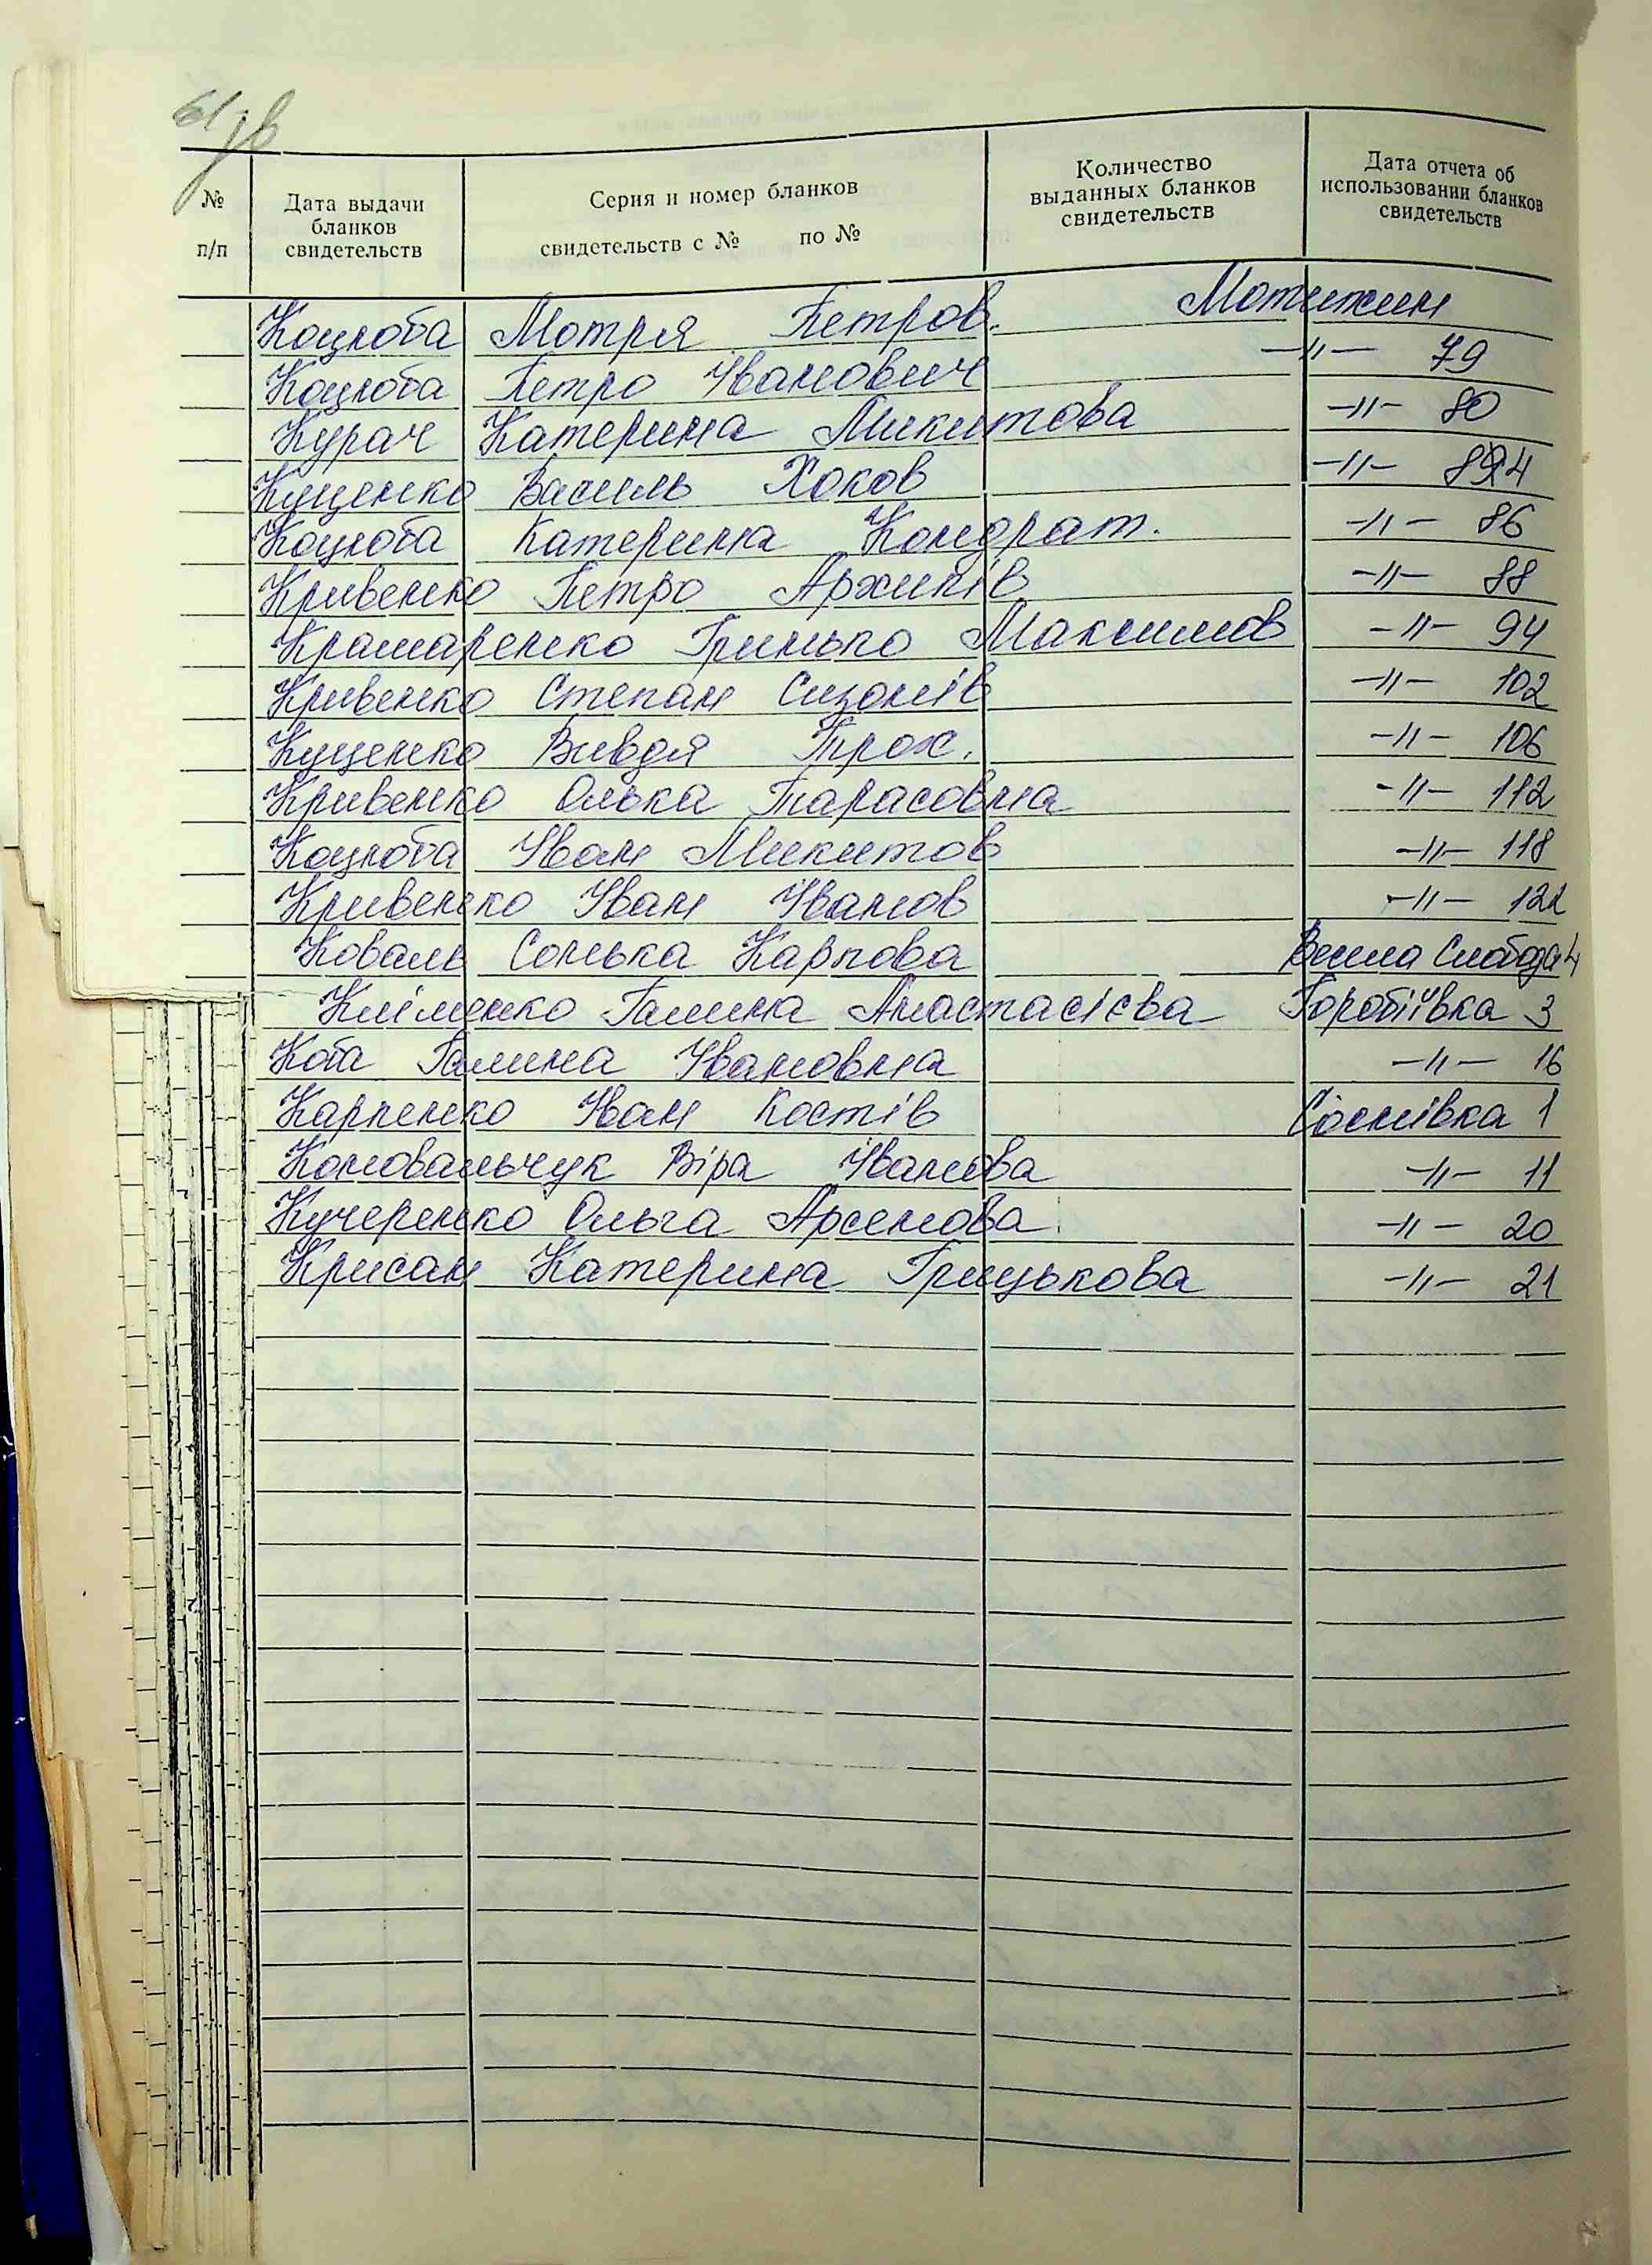 № п/п
Дата выдачи бланков свидетельств
Серия и номер бланков свидетельств с № по №
Количество выданных бланков свидетельств
Дата отчета об использовании бланков свидетельств
Коцюба Мотря Петров. Мотижин
Коцюба Петро Іванович -"- 79
Курач Катерина Микитова -"- 80
Куценко Василь Хоков -"- 84
Коцюба Катерина Кондрат. -"- 86
Кривенко Петро Архипів -"- 88
Крамаренко Гринько Максимов -"- 94
Кривенко Степан Сизонів -"- 102
Куценко Вивдя Трох. -"- 106
Кривенко Олька Тарасовна -"- 112
Коцюба Іван Микитов -"- 118
Кривенко Іван Іванов -"- 122
Коваль Сонька Карпова Весела Слобода 4
Кліменко Галина Анастасієва Горобіївка 3
Коба Галина Івановна -"- 16
Карпенко Іван Костів Соснівка 1
Коновальчук Віра Іванова -"- 11
Кучеренко Ольга Арсенова -"- 20
Крисан Катерина Грицькова -"- 21